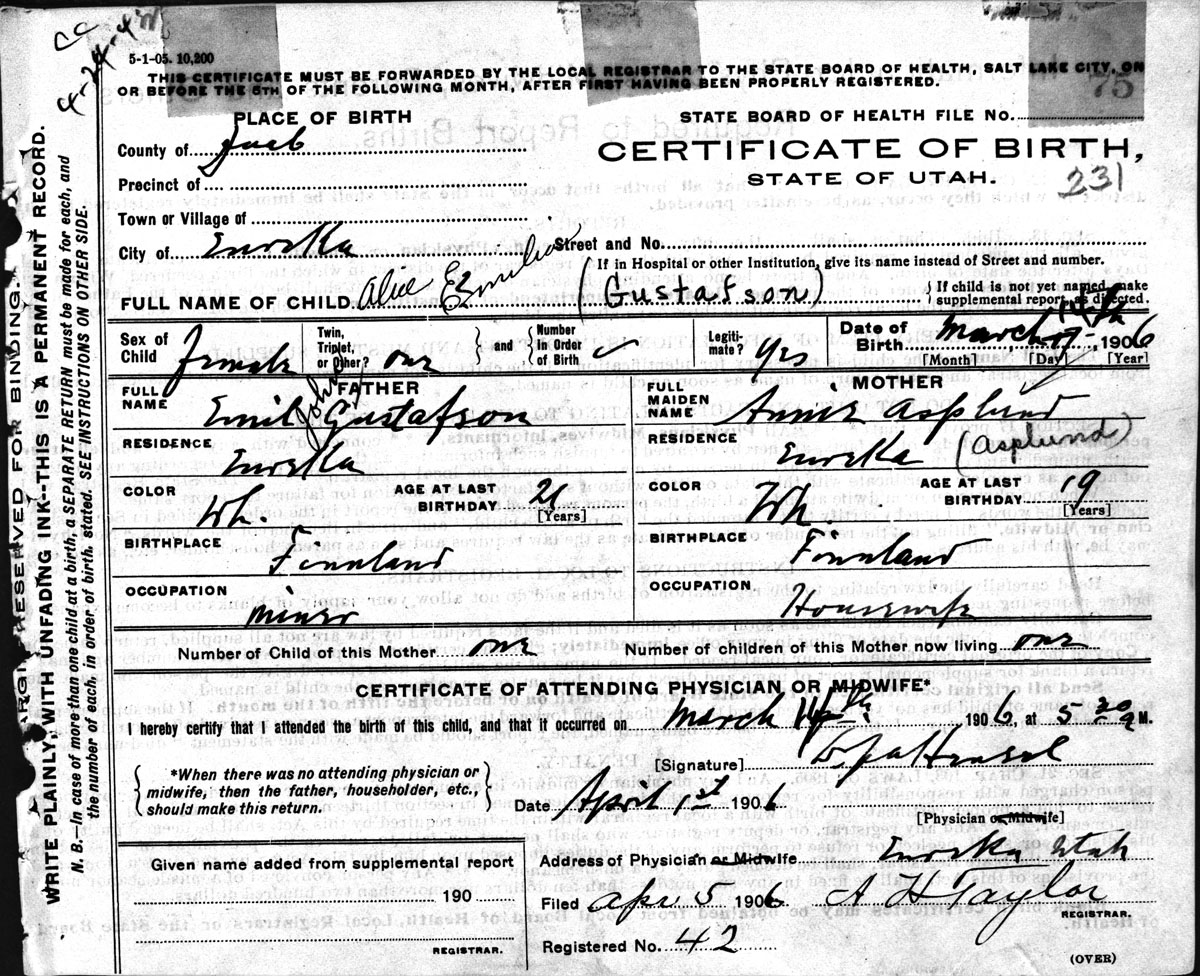 CC
4-24-4
5-1-05. 10,200
THIS CERTIFICATE MUST BE FORWARDED BY THE LOCAL REGISTRAR TO THE STATE BOARD OF HEALTH, SALT LAKE CITY, ON
OR BEFORE THE 5TH OF THE FOLLOWING MONTH, AFTER FIRST HAVING BEEN PROPERLY REGISTERED.
75
PLACE OF BIRTH
STATE BOARD OF HEALTH FILE No.
County of Juab
CERTIFICATE OF BIRTH,
STATE OF UTAH.
231
Precinct of
Town or Village of
City of Eureka
Street and No.
(If in Hospital or other Institution, give its name instead of Street and number.
FULL NAME OF CHILD Alice Emilia (Gustafson)
} If child is not yet named, make
supplemental report, as directed.
Sex of Child Female
Twin, Triplet, or Other? one
} and {
Number In Order of Birth
Legiti-mate? Yes
Date of Birth March 14th 1906
[Month] [Day] [Year]
FATHER
FULL NAME Emil John Gustafson
RESIDENCE Eureka
COLOR Wh.
AGE AT LAST BIRTHDAY
[Years]
BIRTHPLACE Finnland
OCCUPATION Miner
MOTHER
FULL MAIDEN NAME Anna Asplund
(Asplund)
RESIDENCE Eureka
COLOR Wh.
AGE AT LAST BIRTHDAY 19
[Years]
BIRTHPLACE Finnland
OCCUPATION Housewife
Number of Child of this Mother one
Number of children of this Mother now living one
CERTIFICATE OF ATTENDING PHYSICIAN OR MIDWIFE*
I hereby certify that I attended the birth of this child, and that it occurred on March 14th. 1906, at 5 20 a M.
[Signature]
{ *When there was no attending physician or
midwife, then the father, householder, etc.,
should make this return. }
Date April 1st 1906
[Physician or Midwife]
Given name added from supplemental report
190
REGISTRAR.
Address of Physician or Midwife Eureka Utah
Filed Apr 5 1906 A H Taylor
REGISTRAR.
Registered No. 42
(OVER)
MARGIN RESERVED FOR BINDING.
WRITE PLAINLY, WITH UNFADING INK--THIS IS A PERMANENT RECORD.
N. B.—In case of more than one child at a birth, a SEPARATE RETURN must be made for each, and
the number of each, in order of birth, stated. SEE INSTRUCTIONS ON OTHER SIDE.